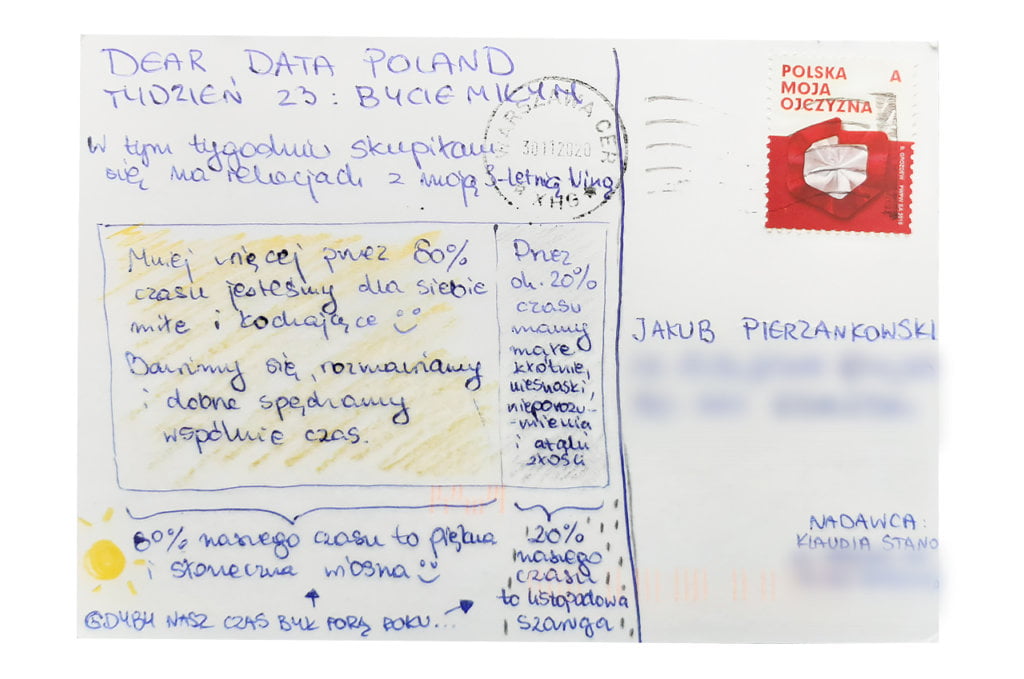 DEAR DATA POLAND
TYDZIEŃ 23: BYCIE MIŁYM
W tym tygodniu skupiłam
się na relacjach z moją 3-letnią Niną
Mniej więcej przez 80%
czasu jesteśmy dla siebie
miłe i kochające
Bawimy się, rozmawiamy
i dobrze spędzamy
wspólnie czas.
Przez
ok. 20%
czasu
mamy
małe
kłótnie,
niesnaski,
nieporozu-
-mienia
i ataki
złości
80% naszego czasu to piękna
i słoneczna wiosna
20%
naszego
czasu
to listopadowa
szaruga
GDYBY NASZ CZAS BYŁ PORĄ ROKU...
WARSZAWA CER
30112020
POLSKA
MOJA
OJCZYZNA
A
JAKUB PIERZANKOWSKI
NADAWCA:
KLAUDIA STANO